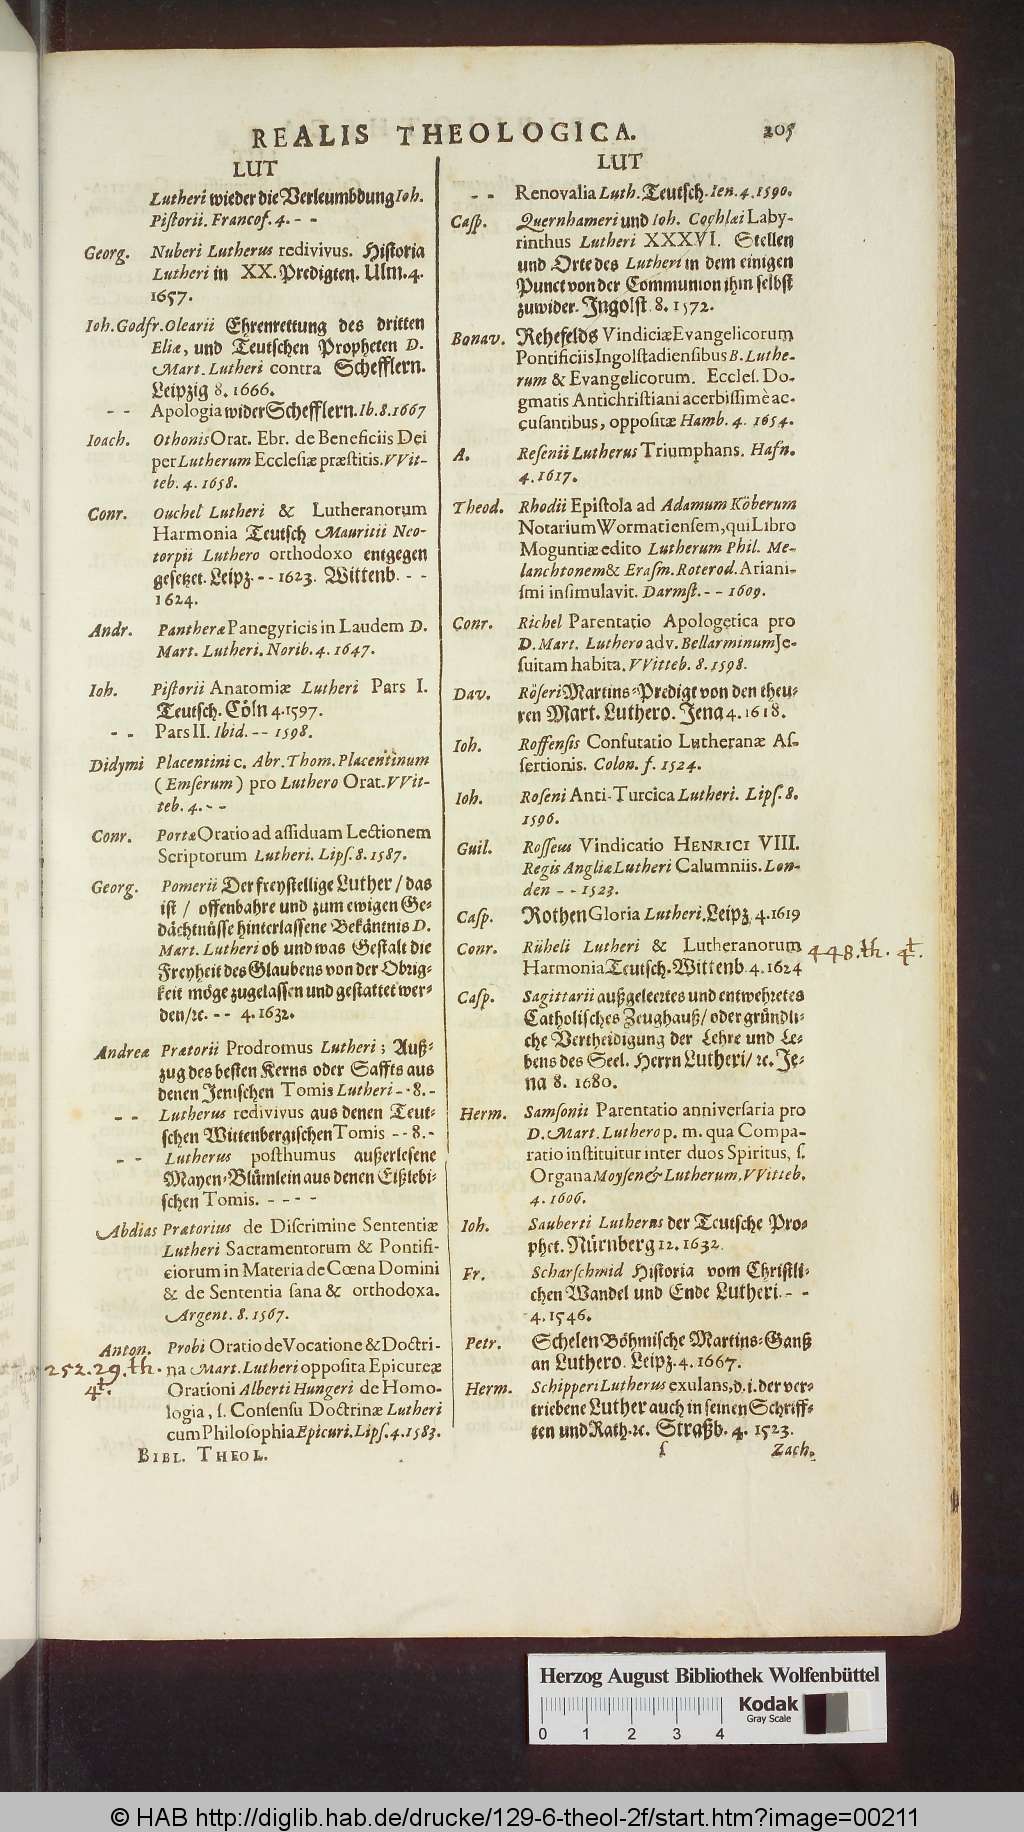 REALIS THEOLOGICA. 205
LUT
Lutheri wieder die Verleumbdung Ioh.
Pistorii. Francof. 4. - -
Georg. Nuberi Lutherus redivivus. Historia
Lutheri in XX. Predigten. Ulm. 4.
1657.
Ioh. Godfr. Olearii Ehrenrettung des dritten
Eliæ, und Teutschen Propheten D.
Mart. Lutheri contra Schefflern.
Leipzig 8. 1666.
- - Apologia wider Schefflern. Ib. 8. 1667
Ioach. Othonis Orat. Ebr. de Beneficiis Dei
per Lutherum Ecclesiæ præstitis. VVit-
teb. 4. 1658.
Conr. Ouchel Lutheri & Lutheranorum
Harmonia Teutsch Mauritii Neo-
torpii Luthero orthodoxo entgegen
gesetzet. Leipz. - - 1623. Wittenb. - -
1624.
Andr. Pantheræ Panegyricis in Laudem D.
Mart. Lutheri. Norib. 4. 1647.
Ioh. Pistorii Anatomiæ Lutheri Pars I.
Teutsch. Cöln 4. 1597.
- - Pars II. Ibid. - - 1598.
Didymi Placentini c. Abr. Thom. Placentinum
(Emserum) pro Luthero Orat. VVit-
teb. 4. - -
Conr. Portæ Oratio ad assiduam Lectionem
Scriptorum Lutheri. Lips. 8. 1587.
Georg. Pomerii Der freystellige Luther / das
ist / offenbahre und zum ewigen Ge-
dächtnüsse hinterlassene Bekäntnis D.
Mart. Lutheri ob und was Gestalt die
Freyheit des Glaubens von der Obrig-
keit möge zugelassen und gestattet wer-
den / rc. - - 4. 1632.
Andreæ Prætorii Prodromus Lutheri; Auß-
zug des besten Kerns oder Saffts aus
denen Jenischen Tomis Lutheri - - 8. -
- - Lutherus redivivus aus denen Teut-
schen Wittenbergischen Tomis - - 8. -
- - Lutherus posthumus außerlesene
Mayen-Blümlein aus denen Eißlebi-
schen Tomis. - - - -
Abdias Prætorius de Discrimine Sententiæ
Lutheri Sacramentorum & Pontifi-
ciorum in Materia de Cœna Domini
& de Sententia sana & orthodoxa.
Argent. 8. 1567.
Anton. Probi Oratio de Vocatione & Doctri-
252.29.th. na Mart. Lutheri opposita Epicureæ
4t. Orationi Alberti Hungeri de Homo-
logia, s. Consensu Doctrinæ Lutheri
cum Philosophia Epicuri. Lips. 4. 1583.
BIBL. THEOL.
LUT
- - Renovalia Luth. Teutsch. Ien. 4. 1590.
Casp. Quernhameri und Ioh. Cochlæi Laby-
rinthus Lutheri XXXVI. Stellen
und Orte des Lutheri in dem einigen
Punct von der Communion ihm selbst
zuwider. Ingolst. 8. 1572.
Bonav. Rehefelds Vindiciæ Evangelicorum
Pontificiis Ingolstadiensibus B. Luthe-
rum & Evangelicorum. Eccles. Do-
gmatis Antichristiani acerbissimè ac-
cusantibus, oppositæ Hamb. 4. 1654.
A. Resenii Lutherus Triumphans. Hafn.
4. 1617.
Theod. Rhodii Epistola ad Adamum Köberum
Notarium Wormatiensem, qui Libro
Moguntiæ edito Lutherum Phil. Me-
lanchtonem & Erasm. Roterod. Ariani-
smi insimulavit. Darmst. - - 1609.
Conr. Richel Parentatio Apologetica pro
D. Mart. Luthero adv. Bellarminum Je-
suitam habita. VVitteb. 8. 1598.
Dav. Röseri Martins-Predigt von den theu-
ren Mart. Luthero. Jena 4. 1618.
Ioh. Roffensis Confutatio Lutheranæ As-
sertionis. Colon. f. 1524.
Ioh. Roseni Anti-Turcica Lutheri. Lips. 8.
1596.
Guil. Rosseus Vindicatio HENRICI VIII.
Regis Angliæ Lutheri Calumniis. Lon-
den - - 1523.
Casp. Rothen Gloria Lutheri. Leipz. 4. 1619
Conr. Rüheli Lutheri & Lutheranorum 448.th. 4t.
Harmonia Teutsch. Wittenb. 4. 1624
Casp. Sagittarii außgeleertes und entwehretes
Catholisches Zeughauß / oder gründli-
che Vertheidigung der Lehre und Le-
bens des Seel. Herrn Lutheri / rc. Je-
na 8. 1680.
Herm. Samsonii Parentatio anniversaria pro
D. Mart. Luthero p. m. qua Compa-
ratio instituitur inter duos Spiritus, s.
Organa Moysen & Lutherum. VVitteb.
4. 1606.
Ioh. Sauberti Lutherus der Teutsche Pro-
phet. Nürnberg 12. 1632.
Fr. Scharschmid Historia vom Christli-
chen Wandel und Ende Lutheri. - -
4. 1546.
Petr. Schelen Böhmische Martins-Ganß
an Luthero. Leipz. 4. 1667.
Herm. Schipperi Lutherus exulans, d. i. der ver-
triebene Luther auch in seinen Schriff-
ten und Rath. rc. Straßb. 4. 1523.
f Zach.
Herzog August Bibliothek Wolfenbüttel
Kodak
Gray Scale
0 1 2 3 4
© HAB http://diglib.hab.de/drucke/129-6-theol-2f/start.htm?image=00211